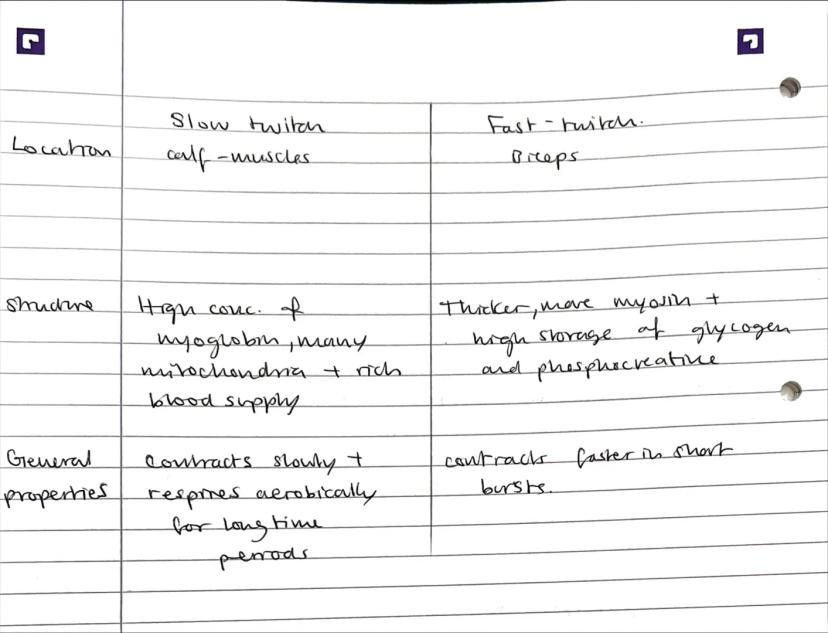 Slow twitch Fast-twitch.
Location calf-muscles Biceps
Structure High conc. of Thicker, more myosin +
myoglobin, many high storage of glycogen
mitochondria + rich and phosphocreatine
blood supply
General Contracts slowly + contracts faster in short
properties respires aerobically bursts.
for long time
periods